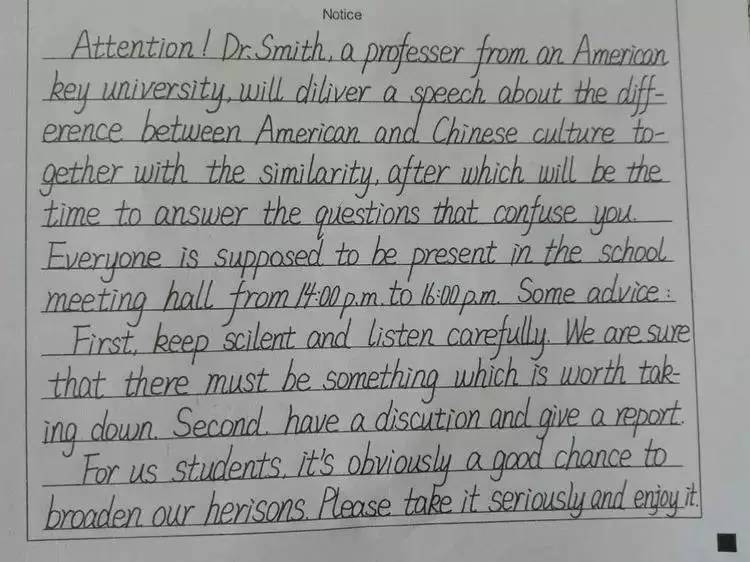 Notice
Attention! Dr.Smith, a professer from an American
key university, will diliver a speech about the diff-
erence between American and Chinese culture to-
gether with the similarity, after which will be the
time to answer the questions that confuse you.
Everyone is supposed to be present in the school
meeting hall from 14:00 p.m. to 16:00 p.m. Some advice:
First, keep scilent and listen carefully. We are sure
that there must be something which is worth tak-
ing down. Second, have a discution and give a report.
For us students, it's obviously a good chance to
broaden our herisons. Please take it seriously and enjoy it.